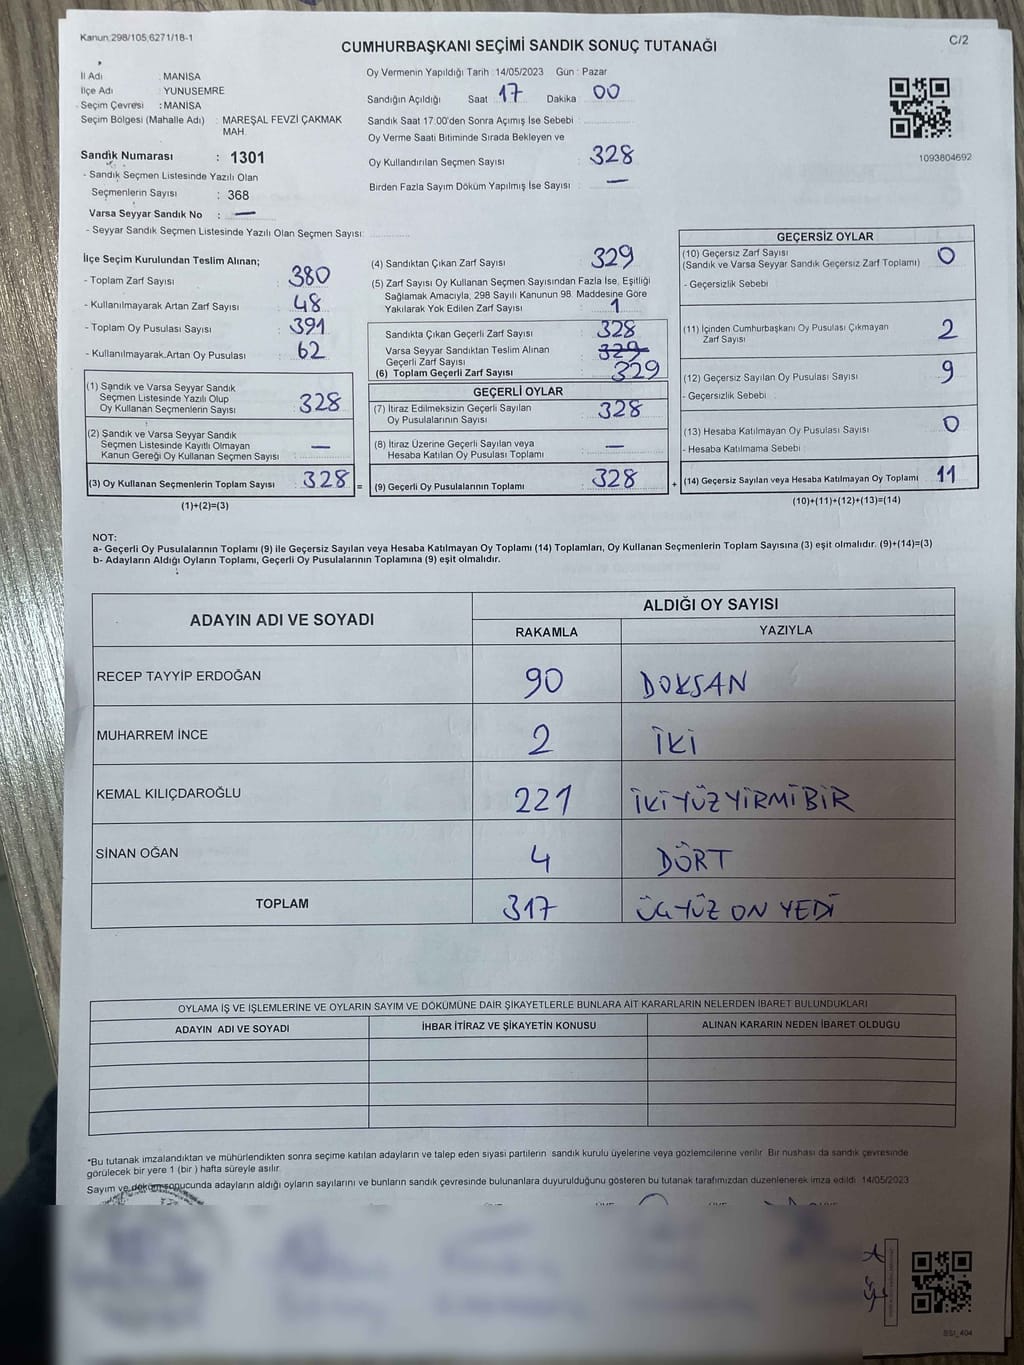 Kanun:298/105;6271/18-1
C/2
CUMHURBAŞKANI SEÇİMİ SANDIK SONUÇ TUTANAĞI
İl Adı : MANİSA
İlçe Adı : YUNUSEMRE
Seçim Çevresi : MANİSA
Seçim Bölgesi (Mahalle Adı) : MAREŞAL FEVZİ ÇAKMAK
MAH.
Sandık Numarası : 1301
- Sandık Seçmen Listesinde Yazılı Olan
Seçmenlerin Sayısı : 368
Varsa Seyyar Sandık No : —
- Seyyar Sandık Seçmen Listesinde Yazılı Olan Seçmen Sayısı:
Oy Vermenin Yapıldığı Tarih : 14/05/2023 Gün : Pazar
Sandığın Açıldığı Saat 17 Dakika 00
Sandık Saat 17:00'den Sonra Açımış İse Sebebi :
Oy Verme Saati Bitiminde Sırada Bekleyen ve
Oy Kullandırılan Seçmen Sayısı : 328
Birden Fazla Sayım Döküm Yapılmış İse Sayısı : —
1093804692
İlçe Seçim Kurulundan Teslim Alınan;
- Toplam Zarf Sayısı : 380
- Kullanılmayarak Artan Zarf Sayısı : 48
- Toplam Oy Pusulası Sayısı : 391
- Kullanılmayarak Artan Oy Pusulası : 62
(1) Sandık ve Varsa Seyyar Sandık
Seçmen Listesinde Yazılı Olup
Oy Kullanan Seçmenlerin Sayısı : 328
(2) Sandık ve Varsa Seyyar Sandık
Seçmen Listesinde Kayıtlı Olmayan
Kanun Gereği Oy Kullanan Seçmen Sayısı : —
(3) Oy Kullanan Seçmenlerin Toplam Sayısı : 328 =
(1)+(2)=(3)
(4) Sandıktan Çıkan Zarf Sayısı : 329
(5) Zarf Sayısı Oy Kullanan Seçmen Sayısından Fazla İse, Eşitliği
Sağlamak Amacıyla, 298 Sayılı Kanunun 98. Maddesine Göre
Yakılarak Yok Edilen Zarf Sayısı : 1
Sandıkta Çıkan Geçerli Zarf Sayısı : 328
Varsa Seyyar Sandıktan Teslim Alınan
Geçerli Zarf Sayısı : 329
(6) Toplam Geçerli Zarf Sayısı : 329
GEÇERLİ OYLAR
(7) İtiraz Edilmeksizin Geçerli Sayılan
Oy Pusulalarının Sayısı : 328
(8) İtiraz Üzerine Geçerli Sayılan veya
Hesaba Katılan Oy Pusulası Toplamı : —
(9) Geçerli Oy Pusulalarının Toplamı : 328 +
GEÇERSİZ OYLAR
(10) Geçersiz Zarf Sayısı
(Sandık ve Varsa Seyyar Sandık Geçersiz Zarf Toplamı) : 0
- Geçersizlik Sebebi :
(11) İçinden Cumhurbaşkanı Oy Pusulası Çıkmayan
Zarf Sayısı : 2
(12) Geçersiz Sayılan Oy Pusulası Sayısı : 9
- Geçersizlik Sebebi :
(13) Hesaba Katılmayan Oy Pusulası Sayısı : 0
- Hesaba Katılmama Sebebi :
(14) Geçersiz Sayılan veya Hesaba Katılmayan Oy Toplamı : 11
(10)+(11)+(12)+(13)=(14)
NOT:
a- Geçerli Oy Pusulalarının Toplamı (9) ile Geçersiz Sayılan veya Hesaba Katılmayan Oy Toplamı (14) Toplamları, Oy Kullanan Seçmenlerin Toplam Sayısına (3) eşit olmalıdır. (9)+(14)=(3)
b- Adayların Aldığı Oyların Toplamı, Geçerli Oy Pusulalarının Toplamına (9) eşit olmalıdır.
ADAYIN ADI VE SOYADI
ALDIĞI OY SAYISI
RAKAMLA YAZIYLA
RECEP TAYYİP ERDOĞAN 90 DOKSAN
MUHARREM İNCE 2 İKİ
KEMAL KILIÇDAROĞLU 221 İKİYÜZYİRMİBİR
SİNAN OĞAN 4 DÖRT
TOPLAM 317 ÜÇYÜZ ON YEDİ
OYLAMA İŞ VE İŞLEMLERİNE VE OYLARIN SAYIM VE DÖKÜMÜNE DAİR ŞİKAYETLERLE BUNLARA AİT KARARLARIN NELERDEN İBARET BULUNDUKLARI
ADAYIN ADI VE SOYADI İHBAR İTİRAZ VE ŞİKAYETİN KONUSU ALINAN KARARIN NEDEN İBARET OLDUĞU
*Bu tutanak imzalandıktan ve mühürlendikten sonra seçime katılan adayların ve talep eden siyasi partilerin sandık kurulu üyelerine veya gözlemcilerine verilir. Bir nushası da sandık çevresinde
görülecek bir yere 1 (bir ) hafta süreyle asılır.
Sayım ve döküm sonucunda adayların aldığı oyların sayılarını ve bunların sandık çevresinde bulunanlara duyurulduğunu gösteren bu tutanak tarafımızdan düzenlenerek imza edildi. 14/05/2023